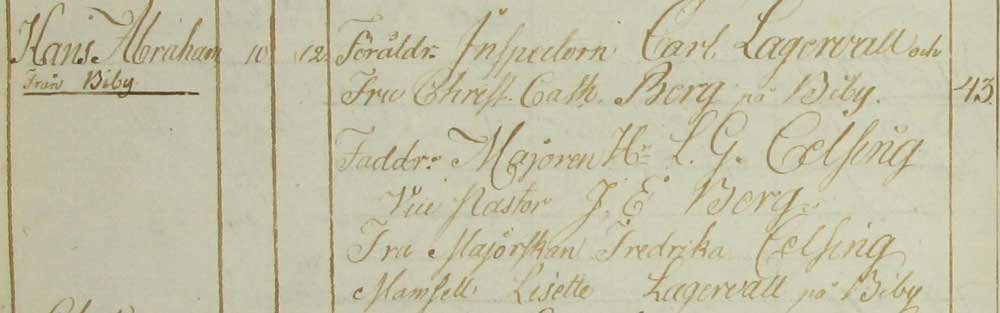 Hans Abraham 10 12. Föräldr. Inspectorn Carl Lagervall och
Från Biby Fru Christ. Cath. Berg på Biby. 43.
Faddr: Majoren Hr L. G. Celsing
Vice Pastor J. E. Berg.
Fru Majorskan Fredrika Celsing
Mamsell Lisette Lagervall på Biby